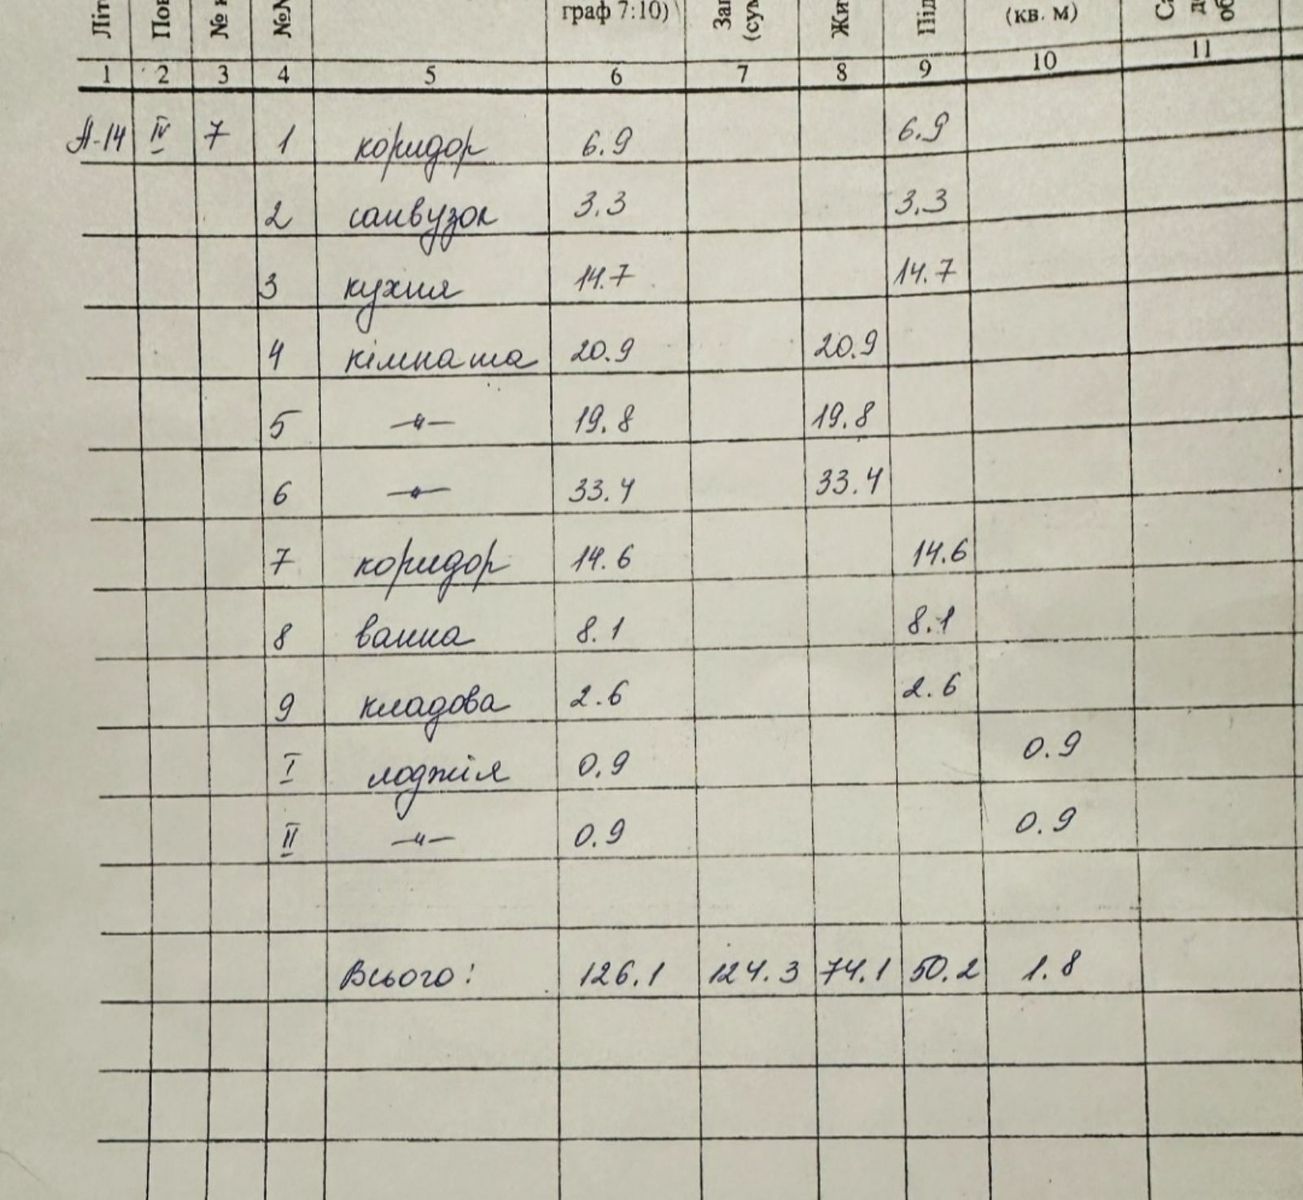 Літ Пов № к №№ граф 7:10) Заг (сум Жит Під (кв. м) Са
1 2 3 4 5 6 7 8 9 10 11
А-14 IV 7 1 коридор 6.9 6.9
2 санвузол 3.3 3.3
3 кухня 14.7 14.7
4 кімната 20.9 20.9
5 -"- 19.8 19.8
6 -"- 33.4 33.4
7 коридор 14.6 14.6
8 ванна 8.1 8.1
9 кладова 2.6 2.6
I лоджія 0.9 0.9
II -"- 0.9 0.9
Всього: 126.1 124.3 74.1 50.2 1.8